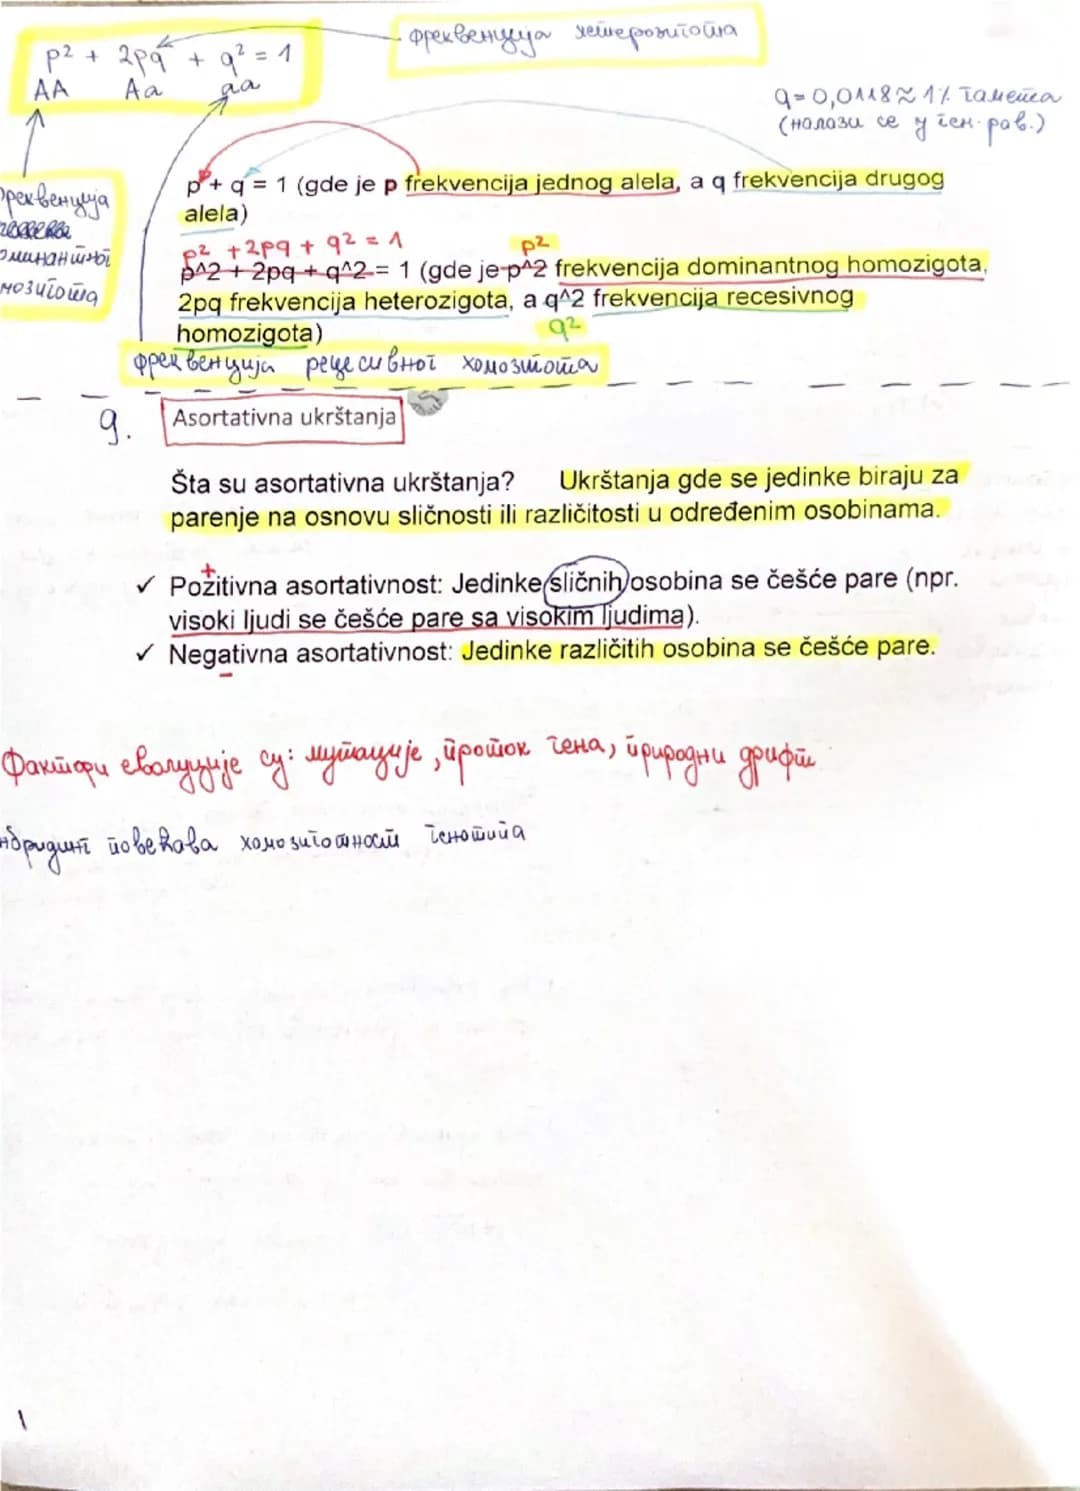 p² + 2pq + q² = 1
AA Aa aa
фреквенција хетерозигота
q = 0,0118 ≈ 1% гамета
(налази се у ген. рав.)
p + q = 1 (gde je p frekvencija jednog alela, a q frekvencija drugog
alela)
фреквенција
оминантног
мозигота
p² + 2pq + q² = 1
p²
p^2 + 2pq + q^2 = 1 (gde je p^2 frekvencija dominantnog homozigota,
2pq frekvencija heterozigota, a q^2 frekvencija recesivnog
homozigota)
q²
фреквенција рецесивног хомозигота
9. Asortativna ukrštanja
Šta su asortativna ukrštanja? Ukrštanja gde se jedinke biraju za
parenje na osnovu sličnosti ili različitosti u određenim osobinama.
+
✓ Pozitivna asortativnost: Jedinke sličnih osobina se češće pare (npr.
visoki ljudi se češće pare sa visokim ljudima).
✓ Negativna asortativnost: Jedinke različitih osobina se češće pare.
Фактори еволуције су: мутације, проток гена, природни дрифт
нбридинг повећава хомозиготност генотипа